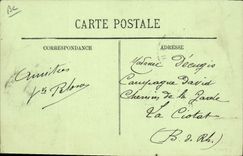 CARTE POSTALE
CORRESPONDANCE
ADRESSE
Amitiés
Madame Décugis
Campagne David
Chemin de la Garde
La Ciotat
(B. d. Rh.)